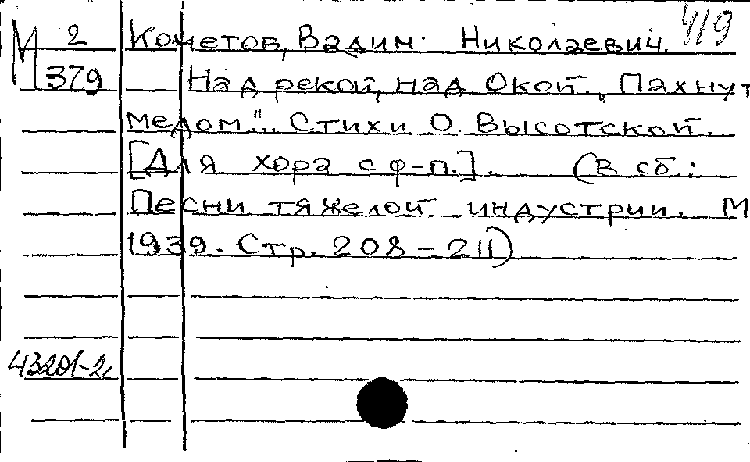 М 2 Кочетов, Вадим Николаевич. 419
379 Над рекой, над Окой. „Пахнут
медом". Стихи О. Высотской.
[Для хора с ф-п.]. (В сб.:
Песни тяжелой индустрии. М
1939. Стр. 208-211)
43201-2